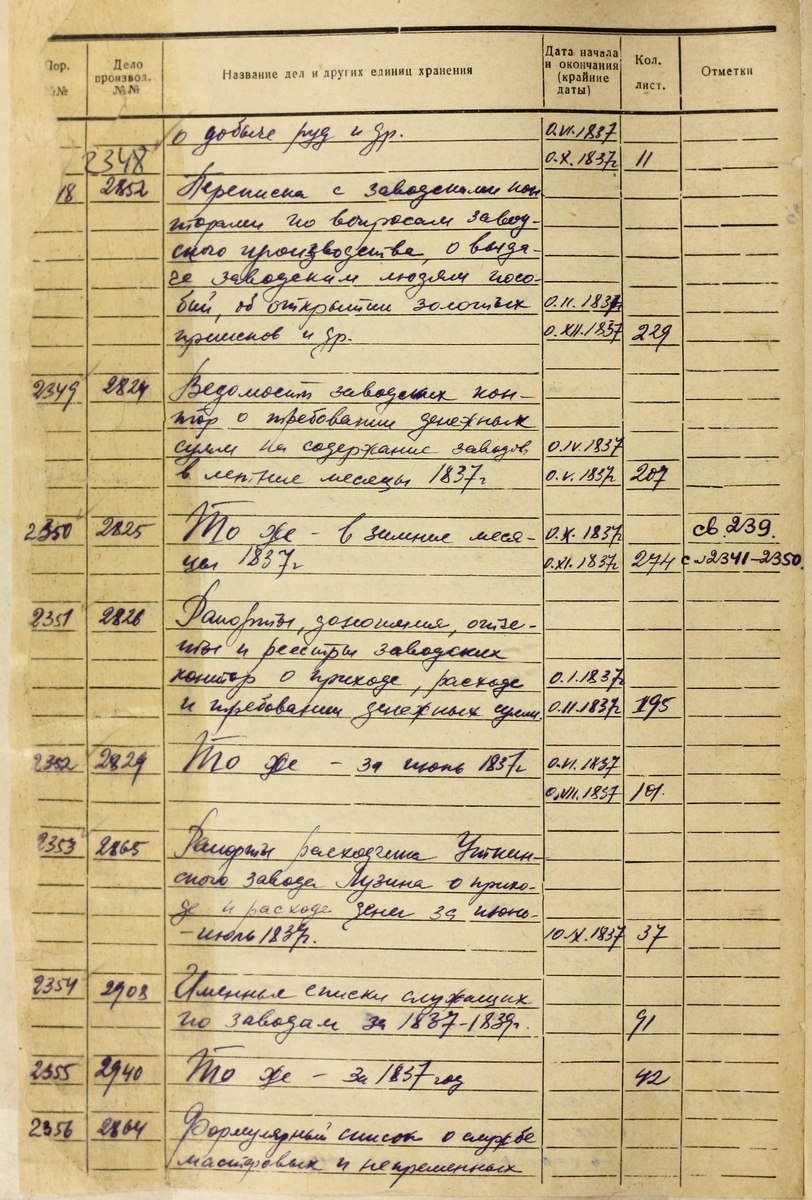 Пор. №№ Дело производ. №№ Название дел и других единиц хранения Дата начала и окончания (крайние даты) Кол. лист. Отметки
о добыче руд и др. 0.VI.1837
2348 0.X.1837г 11
18 2852 Переписка с заводскими кон-
торами по вопросам завод-
ского производства, о выда-
че заводским людям посо-
бий, об открытии золотых 0.II.1837г
приисков и др. 0.XII.1837 229
2349 2824 Ведомости заводских кон-
тор о требовании денежных
сумм на содержание заводов 0.IV.1837
в летние месяцы 1837г 0.V.1837г 207
2350 2825 То же - в зимние меся- 0.X.1837г св.239.
цы 1837г 0.XI.1837г 274 с №2341-2350.
2351 2826 Рапорты, доношения, отче-
ты и реестры заводских
контор о приходе, расходе 0.I.1837г
и требовании денежных сумм. 0.II.1837г 195
2352 2829 То же - за июнь 1837г 0.VI.1837
0.VII.1837 101.
2353 2865 Рапорты расходчика Уткин-
ского завода Пузина о прихо-
де и расходе денег за июнь-
-июль 1837г. 10.IX.1837 37
2354 2908 Именные списки служащих
по заводам за 1837-1839г. 91
2355 2940 То же - за 1837 год 42
2356 2864 Формулярный список о службе
мастеровых и непременных